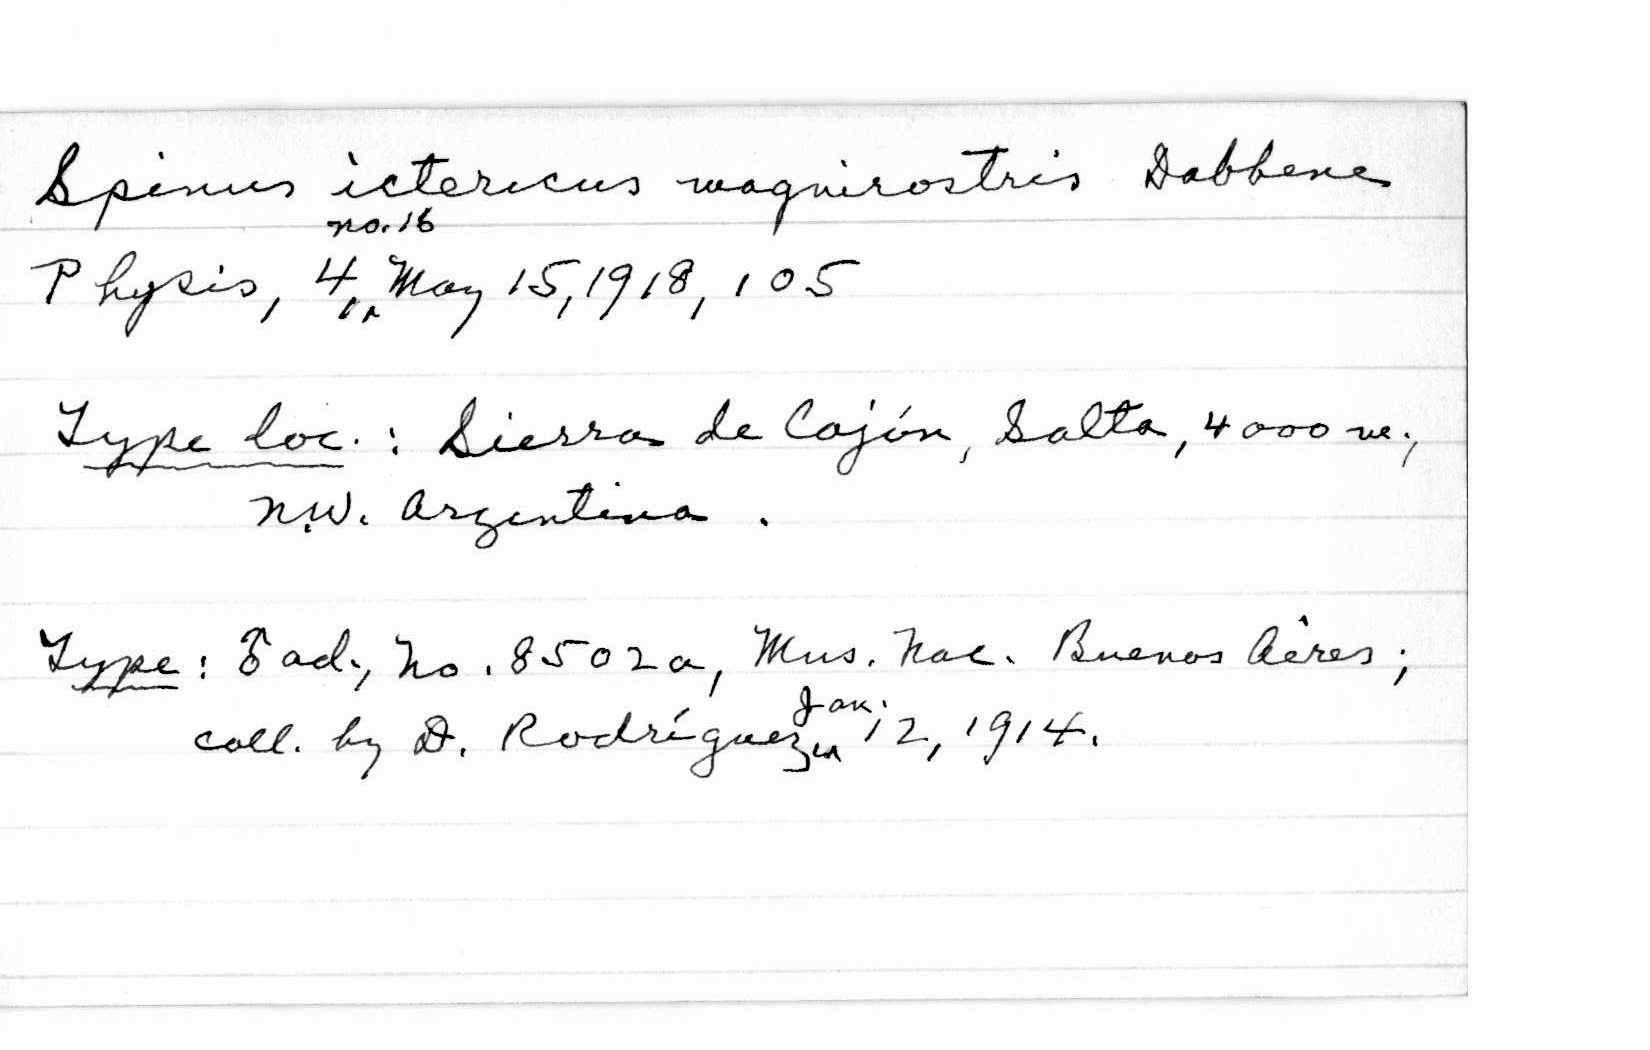 Spinus ictericus magnirostris Dabbene
Physis, 4, no. 16, May 15, 1918, 105
Type loc.: Sierra de Cajón, Salta, 4000 m.,
N.W. Argentina.
Type: ♂ ad., No. 8502a, Mus. Nac. Buenos Aires;
coll. by D. Rodríguez Jan. 12, 1914.